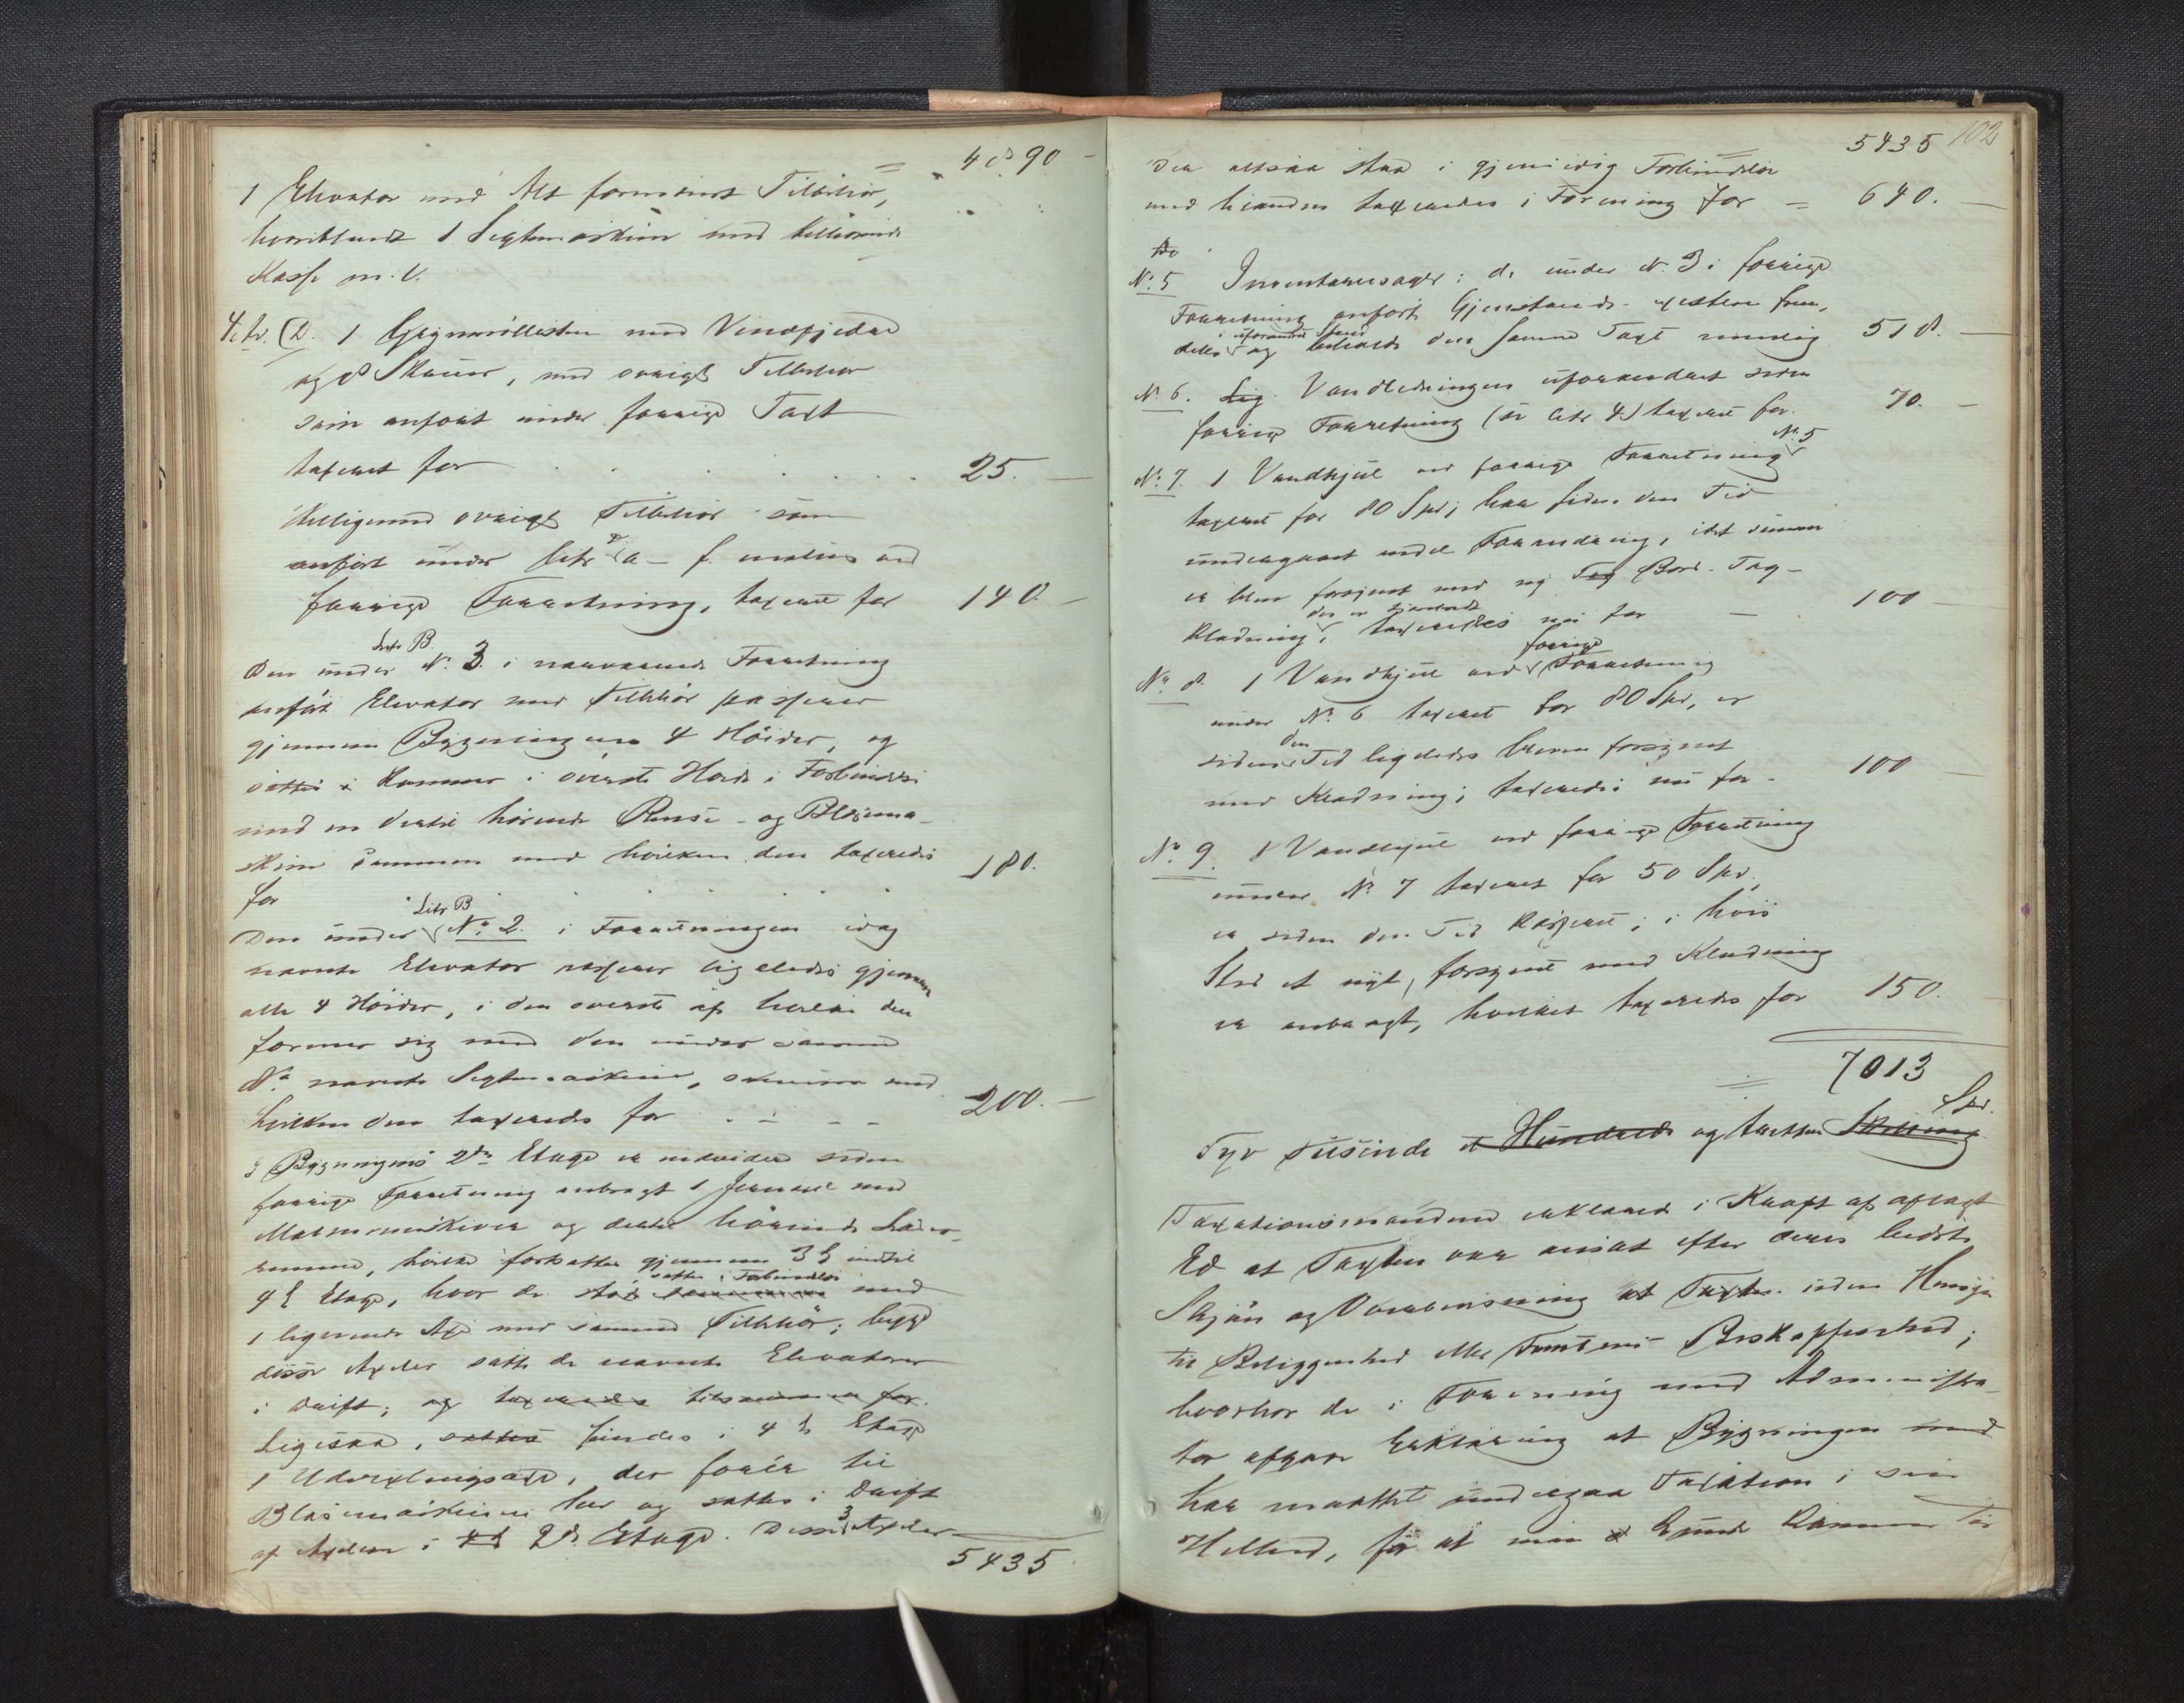 4890
1 Elevator med Alt forunevnt Tilbehør,
hvoriblandt 1 Sigtemaskine med tilhørende
Kasse m. V.
Litr. D. 1 Grynmølle med Vindfjedre
og 8 Skuver, med øvrigt Tilbehør
som anført under forrige Taxt
taxeret for 25.
øvrigt Tilbehør som
anført under Litr a - f inclus ved
forrige Forretning, taxeret for 140
Litr B.
Den under N. 3 i nærværende Forretning
anført Elevator med Tilbehør passerer
gjennem Bygningens 4 Høider, og
sættes i Kammer i øverste Høide i Forbindelse
med en dertil hørende Rense- og Blæsema-
skine sammen med hvilken den taxeredes
for 180.
Litr B
Den under No 2. i Forretningen idag
nævnte Elevator passerer ligeledes gjennem
alle 4 Høider, i den øverste af hvilke den
forener sig med den under samme
No nævnte Sigtemaskine, sammen med
hvilken den taxeredes for 200.
I Bygningens 2den Etage er endvidere siden
forrige Forretning anbragt 1 med
og dertil hørende
remme, hvilke fortsættes gjennem 3die indtil
sættes i Forbindelse
4de Etage, hvor de med
1 lignende Axe med samme Tilbehør;
disse Axeler sætte de nævnte Elevatorer
i Drift; og taxeredes tilsammen for.
Ligesaa, sættes findes i 4de Etage
1 Udvexlingsaxe, der fører til
Blæsemaskinen her og sættes i Drift
3
af Axelen i 2den Etage. Disse Axeler
5435
5435 102
der altsaa staa i gjensidig Forbindelse
med hinanden taxeredes i Forening for = 640.
No
No 5 Inventariesager: de under N. 3 i forrige
Forretning anførte Gjenstande existere frem-
i uforandret Stand
deles og beholde den samme Taxt nemlig 518.
No 6. Lig. Vandledningen uforandret siden
forrige Forretning (se Litr 4) taxeret for. 70.
No 5
No 7. 1 Vandhjul ved forrige Forretning
taxeret for 80 Spd, har siden den Tid
undergaaet endel Forandring, idet samme
er bleven forsynet med ny Tag Bord-Tag-
Klædning, taxeredes nu for 100
forrige
No 8. 1 Vandhjul ved Forretning
under No 6 taxeret for 80 Spd, er
den
siden Tid ligeledes bleven forsynet
med Klædning; taxeredes nu for 100
No 9. 1 Vandhjul ved forrige Forretning
under No 7 taxeret for 50 Spd,
er siden den Tid kasseret; i hvis
Sted et nyt, forsynet med Klædning
er anbragt, hvilket taxeredes for 150.
7013
Spd.
Syv Tusinde et Hundrede og tretten Skilling
Taxationsmændene erklærede i Kraft af aflagt
Ed at Taxten var ansat efter deres bedste
Skjøn og Overbevisning at Taxten uden Hensyn
til Beliggenhed eller Tomtens Beskaffenhed;
hvorhos de i Forening med Administra-
tor afgave Erklæring at Bygningen med
har maattet undergaa Taxation i sin
Helhed, for at man Kunde komme til